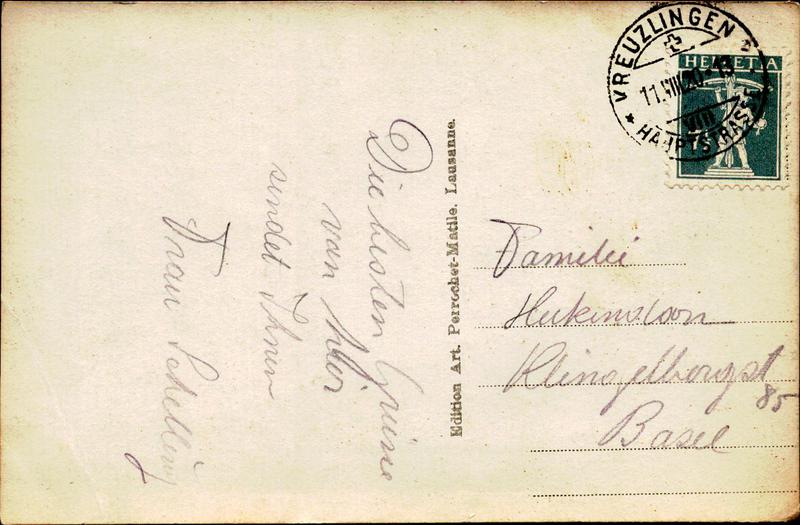 Die besten Grüsse
von hier
sendet Ihnen
Frau Schelling
Edition Art. Perrochet-Matile. Lausanne.
KREUZLINGEN 2
HAUPTSTRASSE
11.VIII.20-13
VIII
HELVETIA
Familie
Klingelbergst
85
Basel